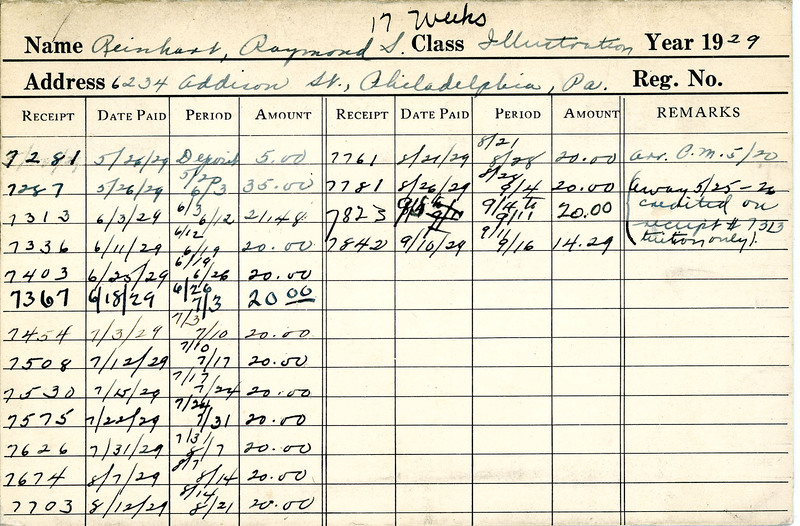 17 Weeks
Name Reinhart, Raymond S. Class Illustration Year 1929
Address 6234 Addison St., Philadelphia, Pa. Reg. No.
RECEIPT DATE PAID PERIOD AMOUNT RECEIPT DATE PAID PERIOD AMOUNT REMARKS
7281 5/26/29 Deposit 5.00 7761 8/21/29 8/21 8/28 20.00 arr. P.M. 5/20
7287 5/26/29 5/20 6/3 35.00 7781 8/26/29 8/28 9/4 20.00 (away 5/25-26
7313 6/3/29 6/3 6/12 21.48 7823 9/4 to 9/11 20.00 credited on
receipt # 7313
7336 6/11/29 6/12 6/19 20.00 7842 9/10/29 9/11 9/16 14.29 tuition only).
7403 6/25/29 6/19 6/26 20.00
7367 6/18/29 6/26 7/3 20.00
7454 7/3/29 7/3 7/10 20.00
7508 7/12/29 7/10 7/17 20.00
7530 7/15/29 7/17 7/24 20.00
7575 7/22/29 7/24 7/31 20.00
7626 7/31/29 7/31 8/7 20.00
7674 8/7/29 8/7 8/14 20.00
7703 8/12/29 8/14 8/21 20.00